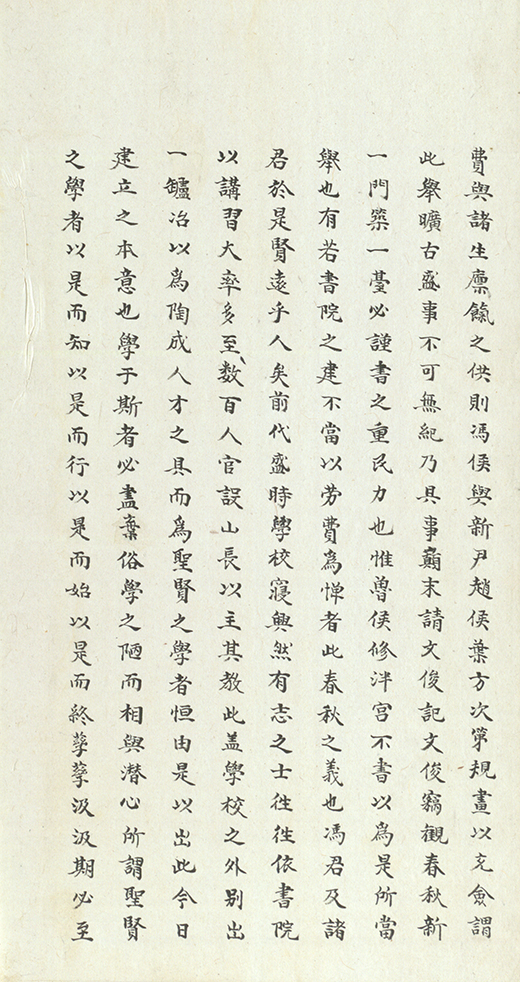 費與諸生廪餼之供則馮侯與新尹趙侯葉方次第規畫以充僉謂
此舉曠古盛事不可無紀乃具事巔末請文俊記文俊竊觀春秋新
一門築一臺必謹書之重民力也惟魯侯修泮宮不書以爲是所當
舉也有若書院之建不當以勞費爲憚者此春秋之義也馮君及諸
君於是賢遠乎人矣前代盛時學校寖興然有志之士徃徃依書院
以講習大率多至數百人官設山長以主其教此盖學校之外别出
一鑪冶以爲陶成人才之具而爲聖賢之學者恒由是以出此今日
建立之本意也學于斯者必盡棄俗學之陋而相與潜心所謂聖賢
之學者以是而知以是而行以是而始以是而終孳孳汲汲期必至